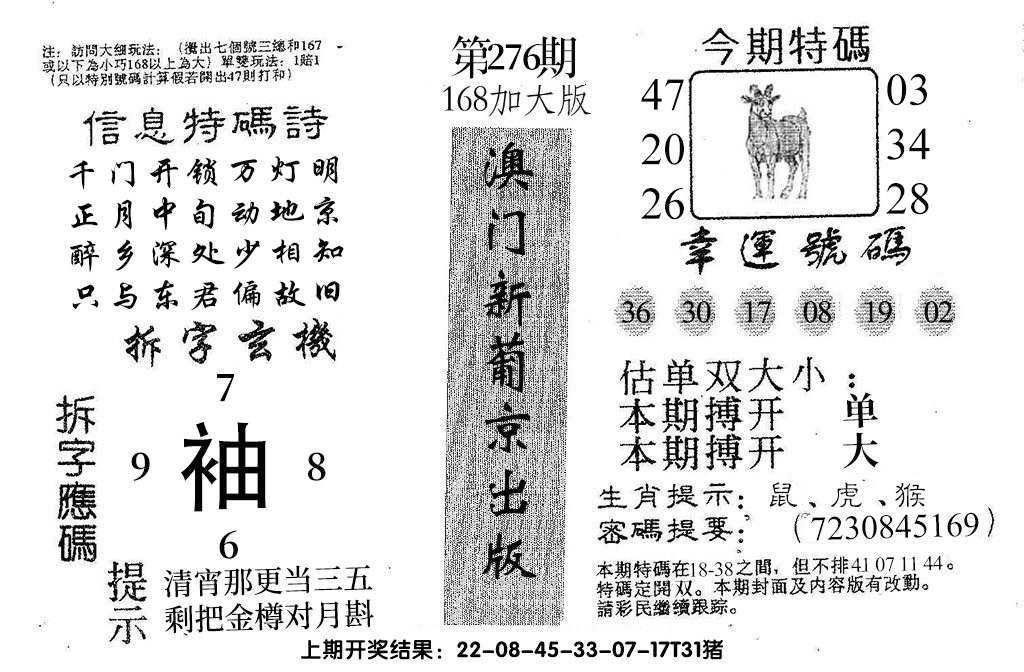 注：訪問大细玩法：（攪出七個號三總和167
或以下為小巧168以上為大）單雙玩法：1賠1
（只以特別號碼計算假若開出47則打和）
信息特碼詩
千门开锁万灯明
正月中旬动地京
醉乡深处少相知
只与东君偏故旧
拆字玄機
拆字應碼
7
9 袖 8
6
提示
清宵那更当三五
剩把金樽对月斟
第276期
168加大版
澳门新葡京出版
今期特碼
47 03
20 34
26 28
幸運號碼
36 30 17 08 19 02
估单双大小：
本期搏开 单
本期搏开 大
生肖提示：鼠、虎、猴
密碼提要：（7230845169）
本期特碼在18-38之間，但不排41 07 11 44。
特碼定開双。本期封面及内容版有改動。
請彩民繼續跟踪。
上期开奖结果：22-08-45-33-07-17T31猪